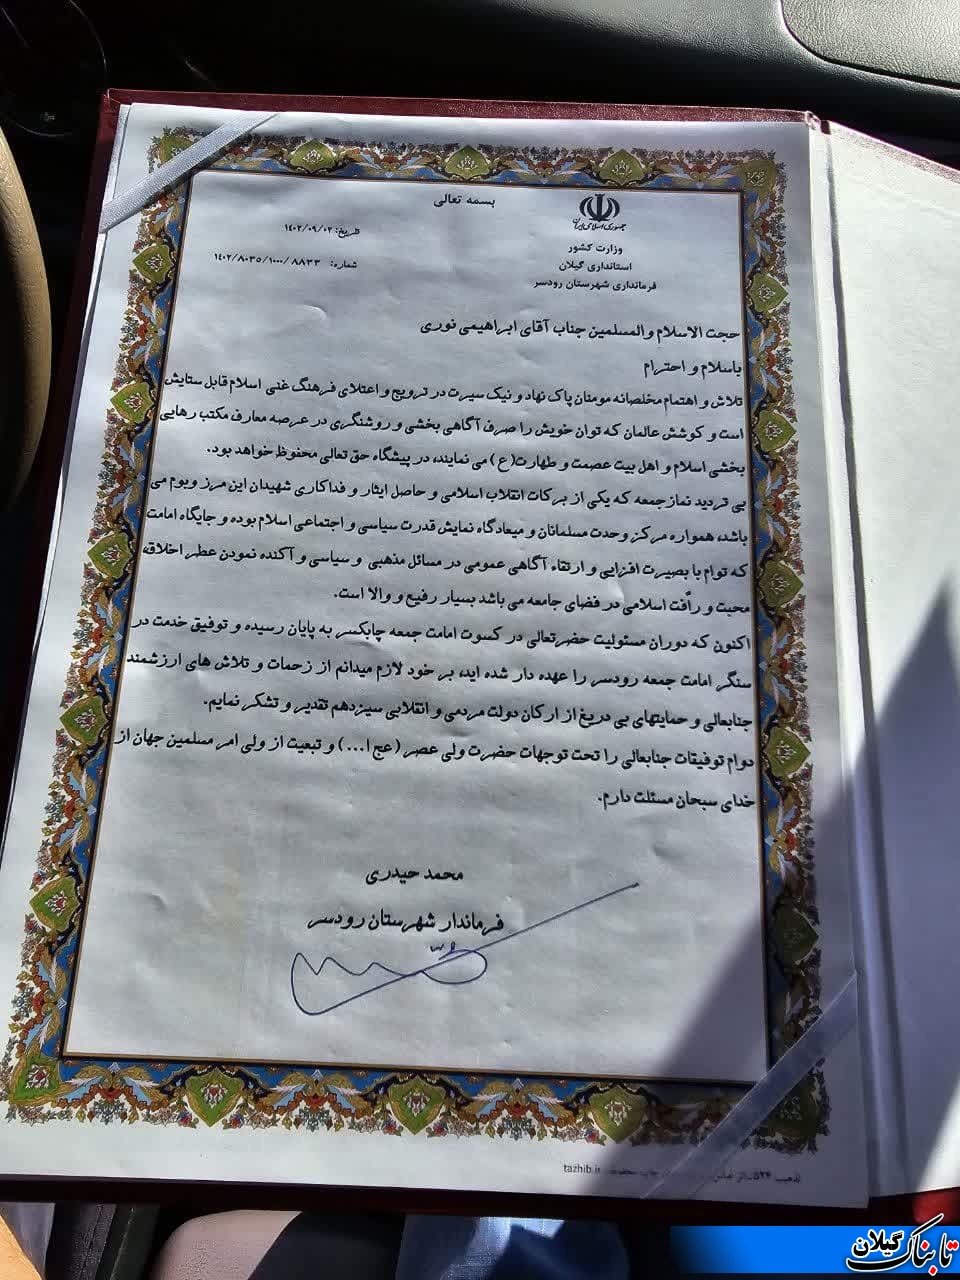 بسمه تعالی
جمهوری اسلامی ایران
وزارت کشور
استانداری گیلان
فرمانداری شهرستان رودسر
تاریخ: ۱۴۰۲/۰۹/۰۲
شماره: ۱۴۰۲/۸۰۳۵/۱۰۰۰/۸۸۳۳
حجت الاسلام والمسلمین جناب آقای ابراهیمی نوری
باسلام و احترام
تلاش و اهتمام مخلصانه مومنان پاک نهاد و نیک سیرت در ترویج و اعتلای فرهنگ غنی اسلام قابل ستایش
است و کوشش عالمان که توان خویش را صرف آگاهی بخشی و روشنگری در عرصه معارف مکتب رهایی
بخشی اسلام و اهل بیت عصمت و طهارت(ع) می نمایند، در پیشگاه حق تعالی محفوظ خواهد بود.
بی تردید نماز جمعه که یکی از برکات انقلاب اسلامی و حاصل ایثار و فداکاری شهیدان این مرز وبوم می
باشد، همواره مرکز وحدت مسلمانان و میعادگاه نمایش قدرت سیاسی و اجتماعی اسلام بوده و جایگاه امامت
که توام با بصیرت افزایی و ارتقاء آگاهی عمومی در مسائل مذهبی و سیاسی و آکنده نمودن عطر اخلاق،
محبت و رأفت اسلامی در فضای جامعه می باشد بسیار رفیع و والا است.
اکنون که دوران مسئولیت حضرتعالی در کسوت امامت جمعه چابکسر به پایان رسیده و توفیق خدمت در
سنگر امامت جمعه رودسر را عهده دار شده اید، بر خود لازم میدانم از زحمات و تلاش های ارزشمند
جنابعالی و حمایتهای بی دریغ از ارکان دولت مردمی و انقلابی سیزدهم تقدیر و تشکر نمایم.
دوام توفیقات جنابعالی را تحت توجهات حضرت ولی عصر (عج ا...) و تبعیت از ولی امر مسلمین جهان از
خدای سبحان مسئلت دارم.
محمد حیدری
فرماندار شهرستان رودسر
تذهیب ۵۲۴ tazhib.ir
تابناک گیلان